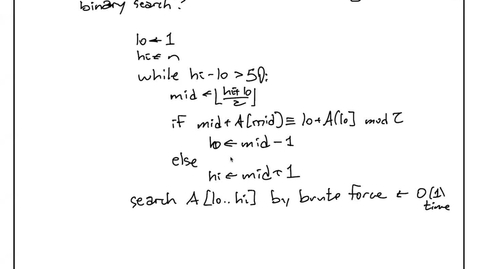 binary search?
lo ← 1
hi ← n
while hi - lo > 50:
mid ← ⌊(hi+lo)/2⌋
if mid + A[mid] ≡ lo + A[lo] mod 2
lo ← mid - 1
else
hi ← mid + 1
search A[lo..hi] by brute force ← O(1) time